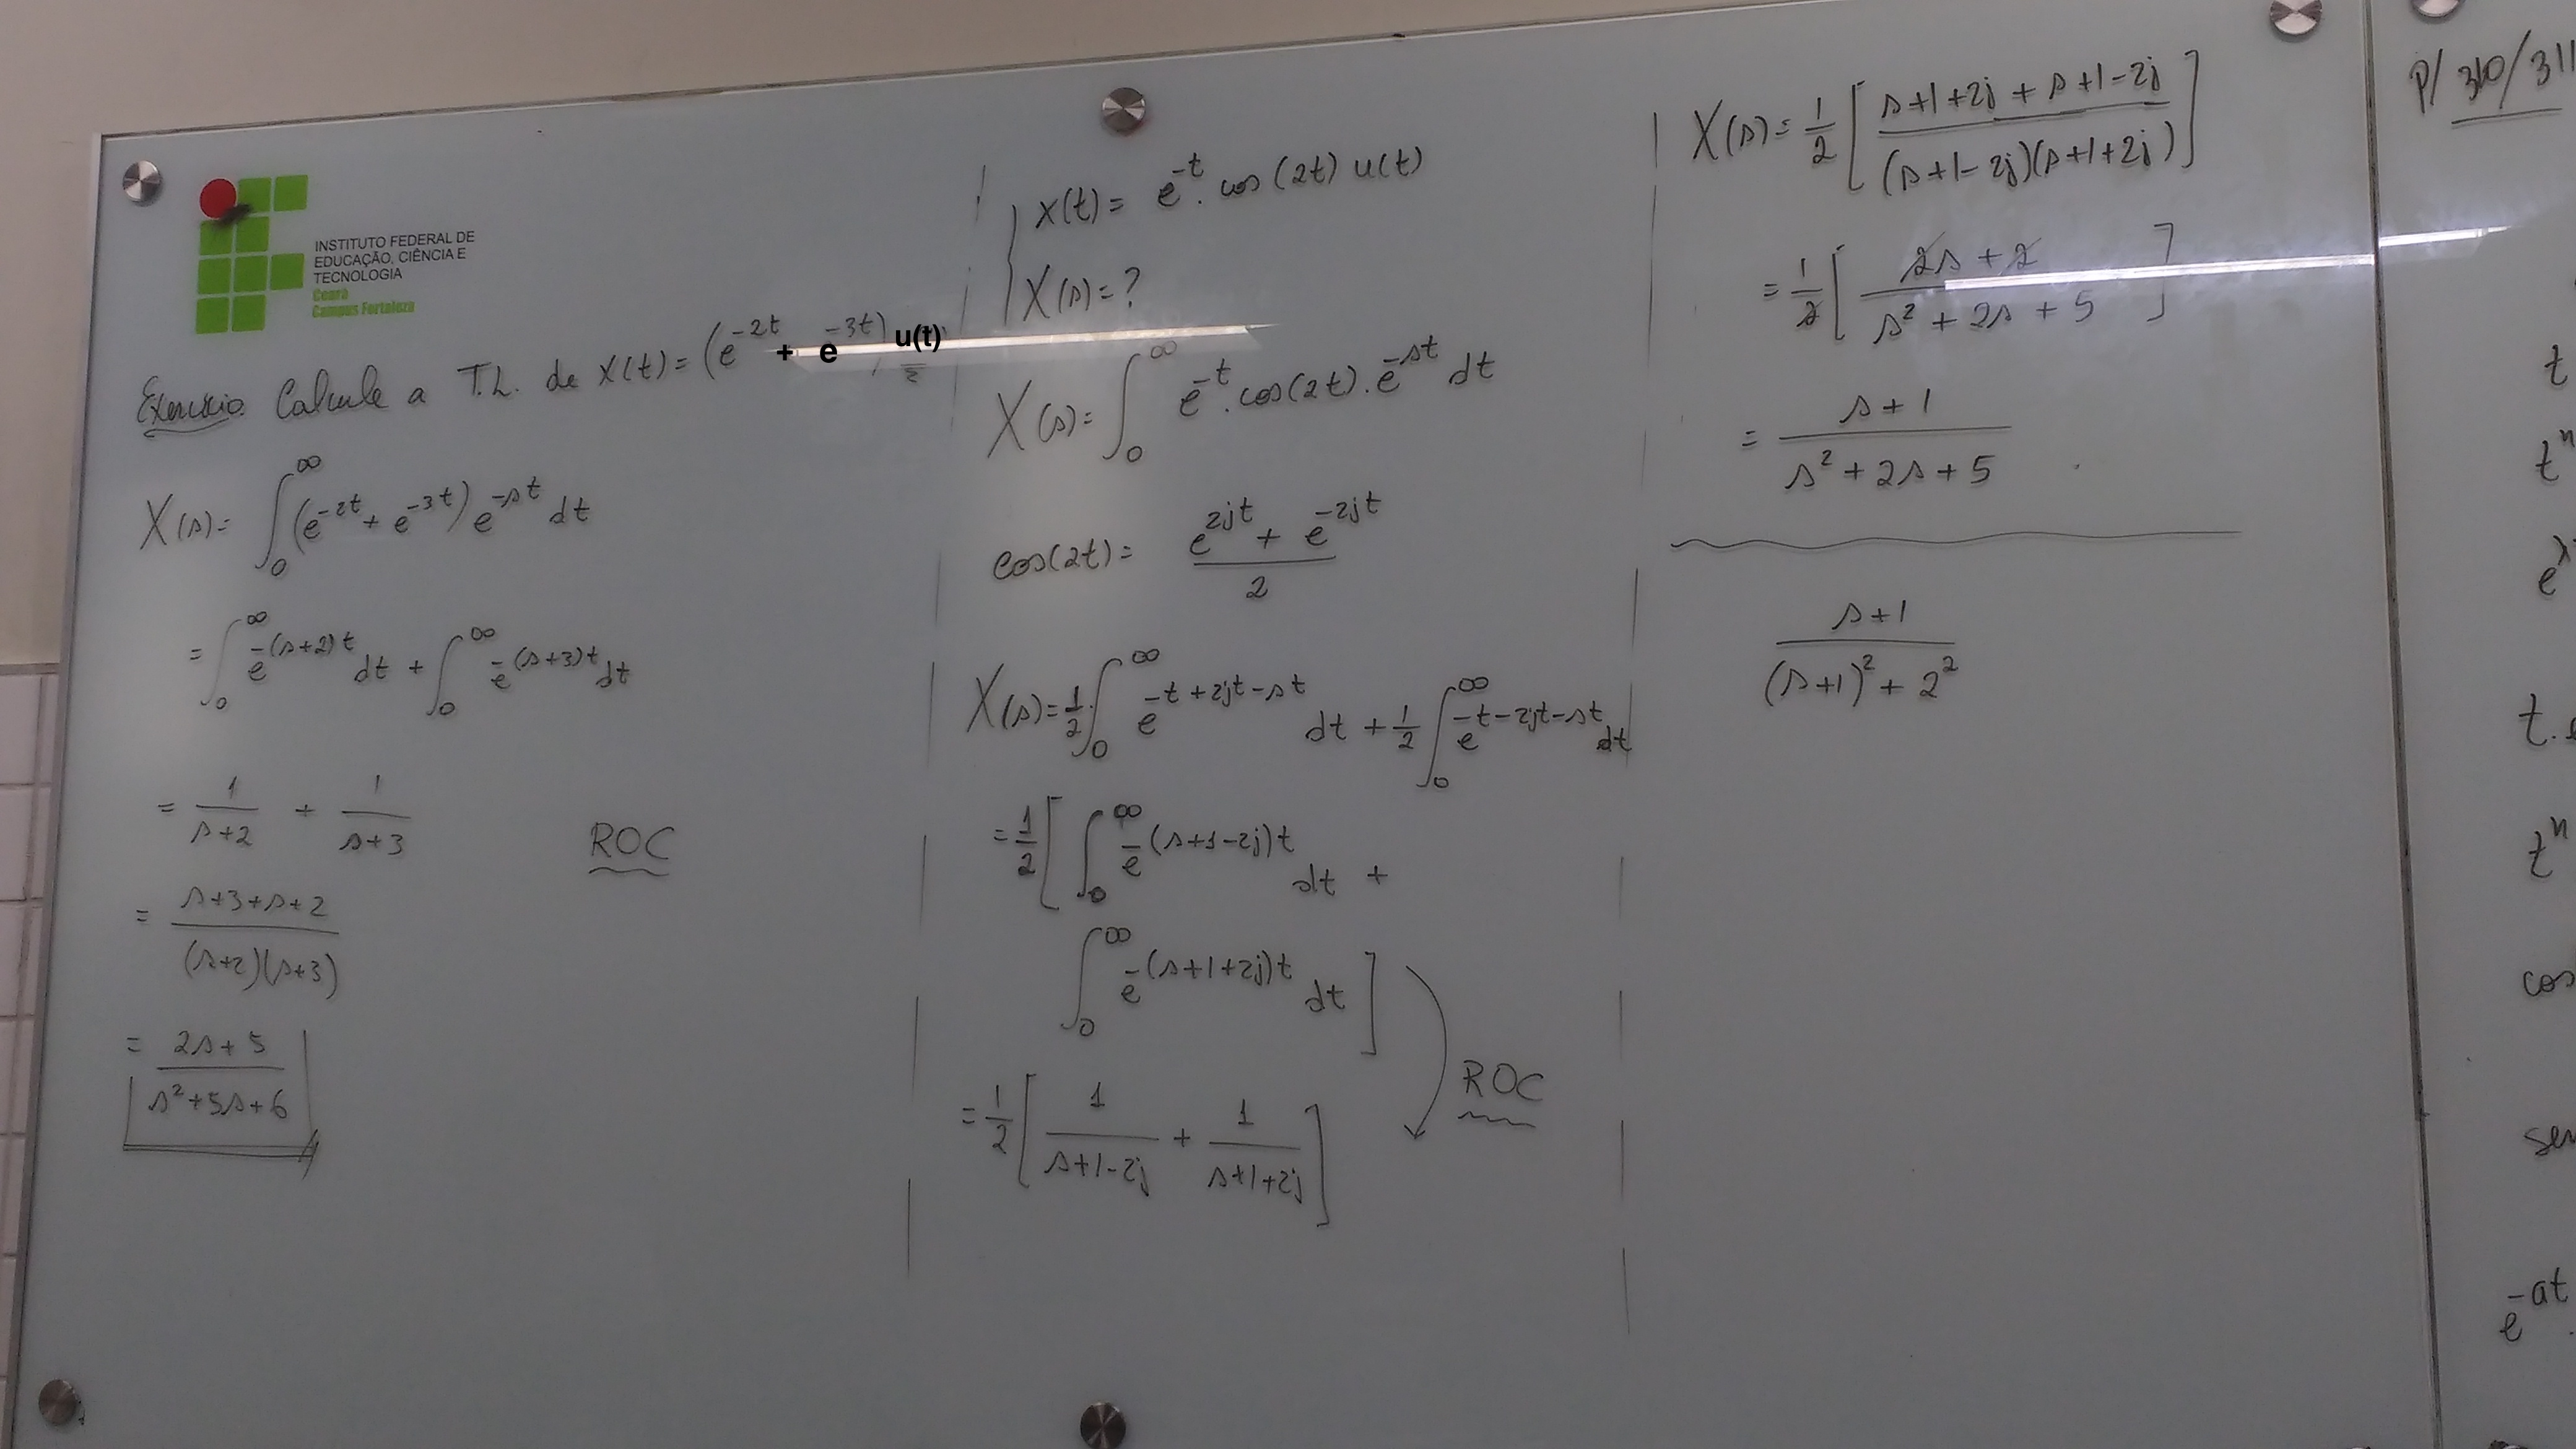 INSTITUTO FEDERAL DE
EDUCAÇÃO, CIÊNCIA E
TECNOLOGIA
Ceará
Campus Fortaleza
Exercício. Calcule a T.L. de x(t) = (e^{-2t} + e^{-3t}) u(t)
X(s) = ∫_0^∞ (e^{-2t} + e^{-3t}) e^{-st} dt
= ∫_0^∞ e^{-(s+2)t} dt + ∫_0^∞ e^{-(s+3)t} dt
= 1/(s+2) + 1/(s+3)
ROC
= (s+3+s+2)/((s+2)(s+3))
= (2s+5)/(s²+5s+6)
x(t) = e^{-t} . cos(2t) u(t)
X(s) = ?
X(s) = ∫_0^∞ e^{-t} . cos(2t) . e^{-st} dt
cos(2t) = (e^{2jt} + e^{-2jt})/2
X(s) = 1/2 ∫_0^∞ e^{-t+2jt-st} dt + 1/2 ∫_0^∞ e^{-t-2jt-st} dt
= 1/2 [ ∫_0^∞ e^{-(s+1-2j)t} dt +
∫_0^∞ e^{-(s+1+2j)t} dt ]
ROC
= 1/2 [ 1/(s+1-2j) + 1/(s+1+2j) ]
X(s) = 1/2 [ (s+1+2j + s+1-2j)/((s+1-2j)(s+1+2j)) ]
= 1/2 [ (2s+2)/(s²+2s+5) ]
= (s+1)/(s²+2s+5)
(s+1)/((s+1)²+2²)
P/ 310/311
t
t^n
e
t.
t^n
cos
sen
e^{-at}.